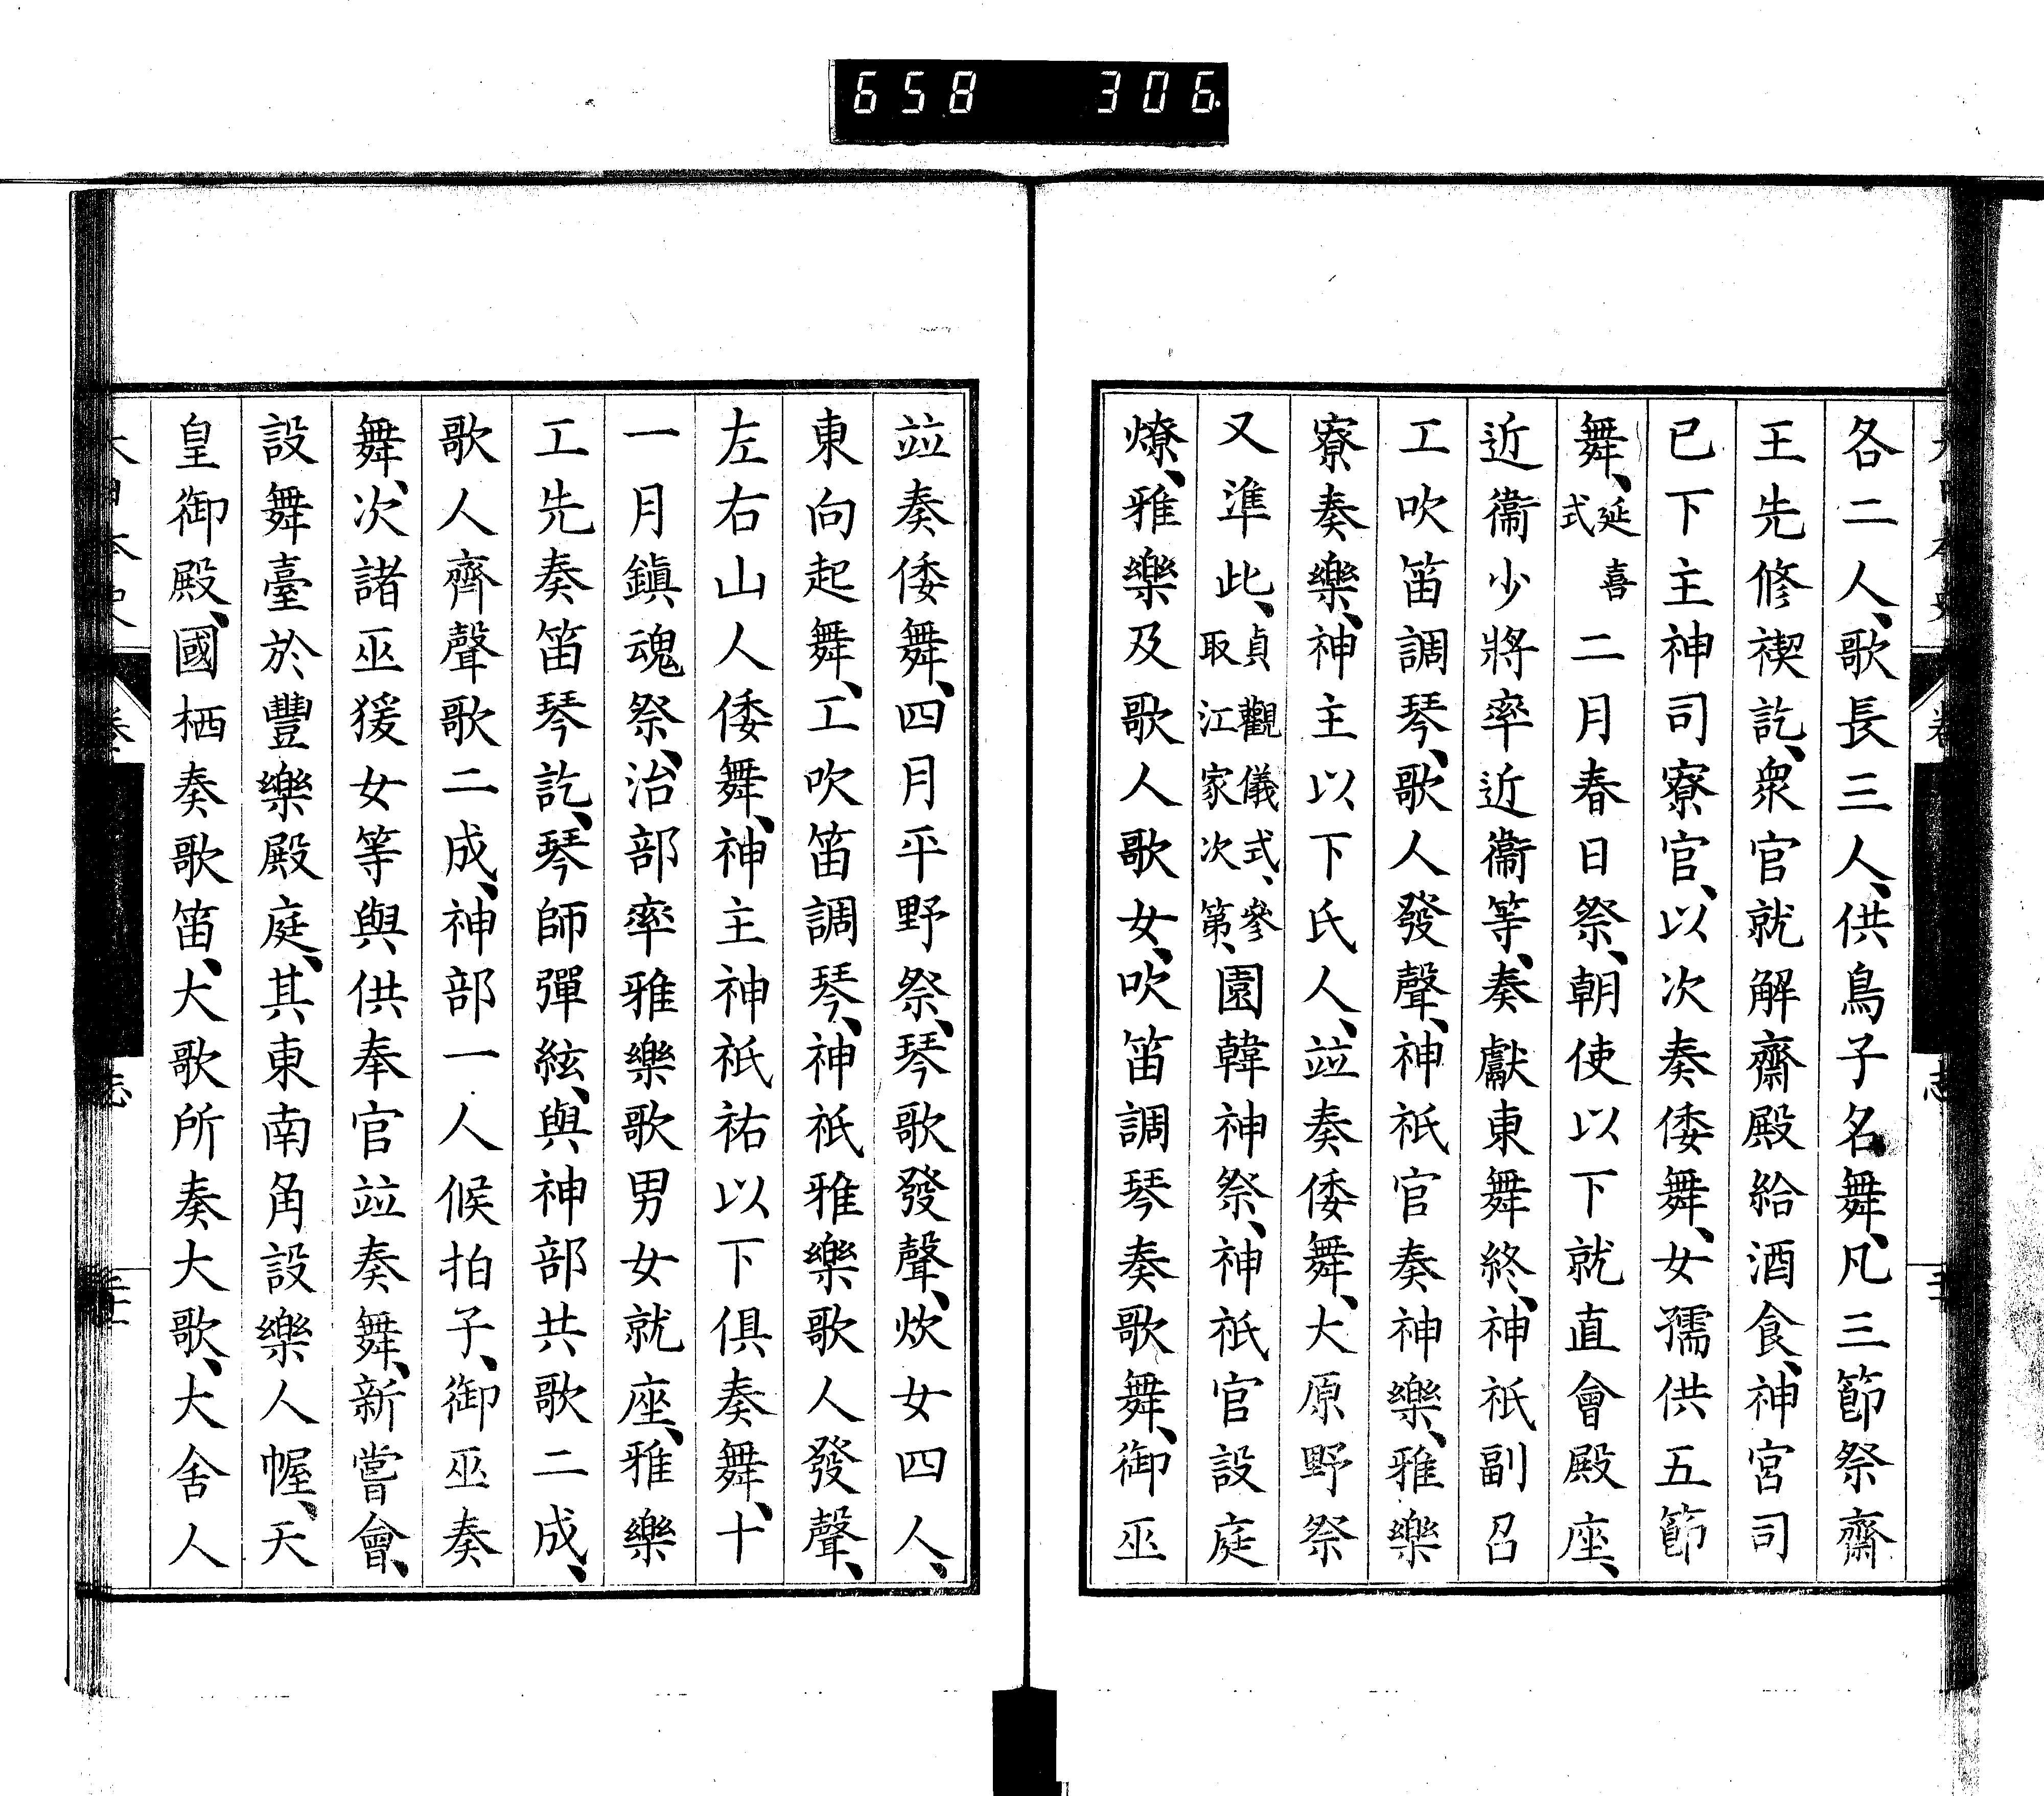 658 306
各二人、歌長三人、供鳥子名舞、凡三節祭齋
王先修禊訖、衆官就解齋殿給酒食、神宮司
已下主神司寮官、以次奏倭舞、女孺供五節
舞、延喜式二月春日祭、朝使以下就直會殿座、
近衞少將率近衞等、奏獻東舞終、神祇副召
工吹笛調琴、歌人發聲、神祇官奏神樂、雅樂
寮奏樂、神主以下氏人、竝奏倭舞、大原野祭
又準此、貞觀儀式、參取江家次第、園韓神祭、神祇官設庭
燎、雅樂及歌人歌女、吹笛調琴奏歌舞、御巫
竝奏倭舞、四月平野祭、琴歌發聲、炊女四人、
東向起舞、工吹笛調琴、神祇雅樂歌人發聲、
左右山人倭舞、神主神祇祐以下俱奏舞、十
一月鎭魂祭、治部率雅樂歌男女就座、雅樂
工先奏笛琴訖、琴師彈絃、與神部共歌二成、
歌人齊聲歌二成、神部一人候拍子、御巫奏
舞、次諸巫猨女等與供奉官竝奏舞、新嘗會、
設舞臺於豐樂殿庭、其東南角設樂人幄、天
皇御殿、國栖奏歌笛、大歌所奏大歌、大舍人